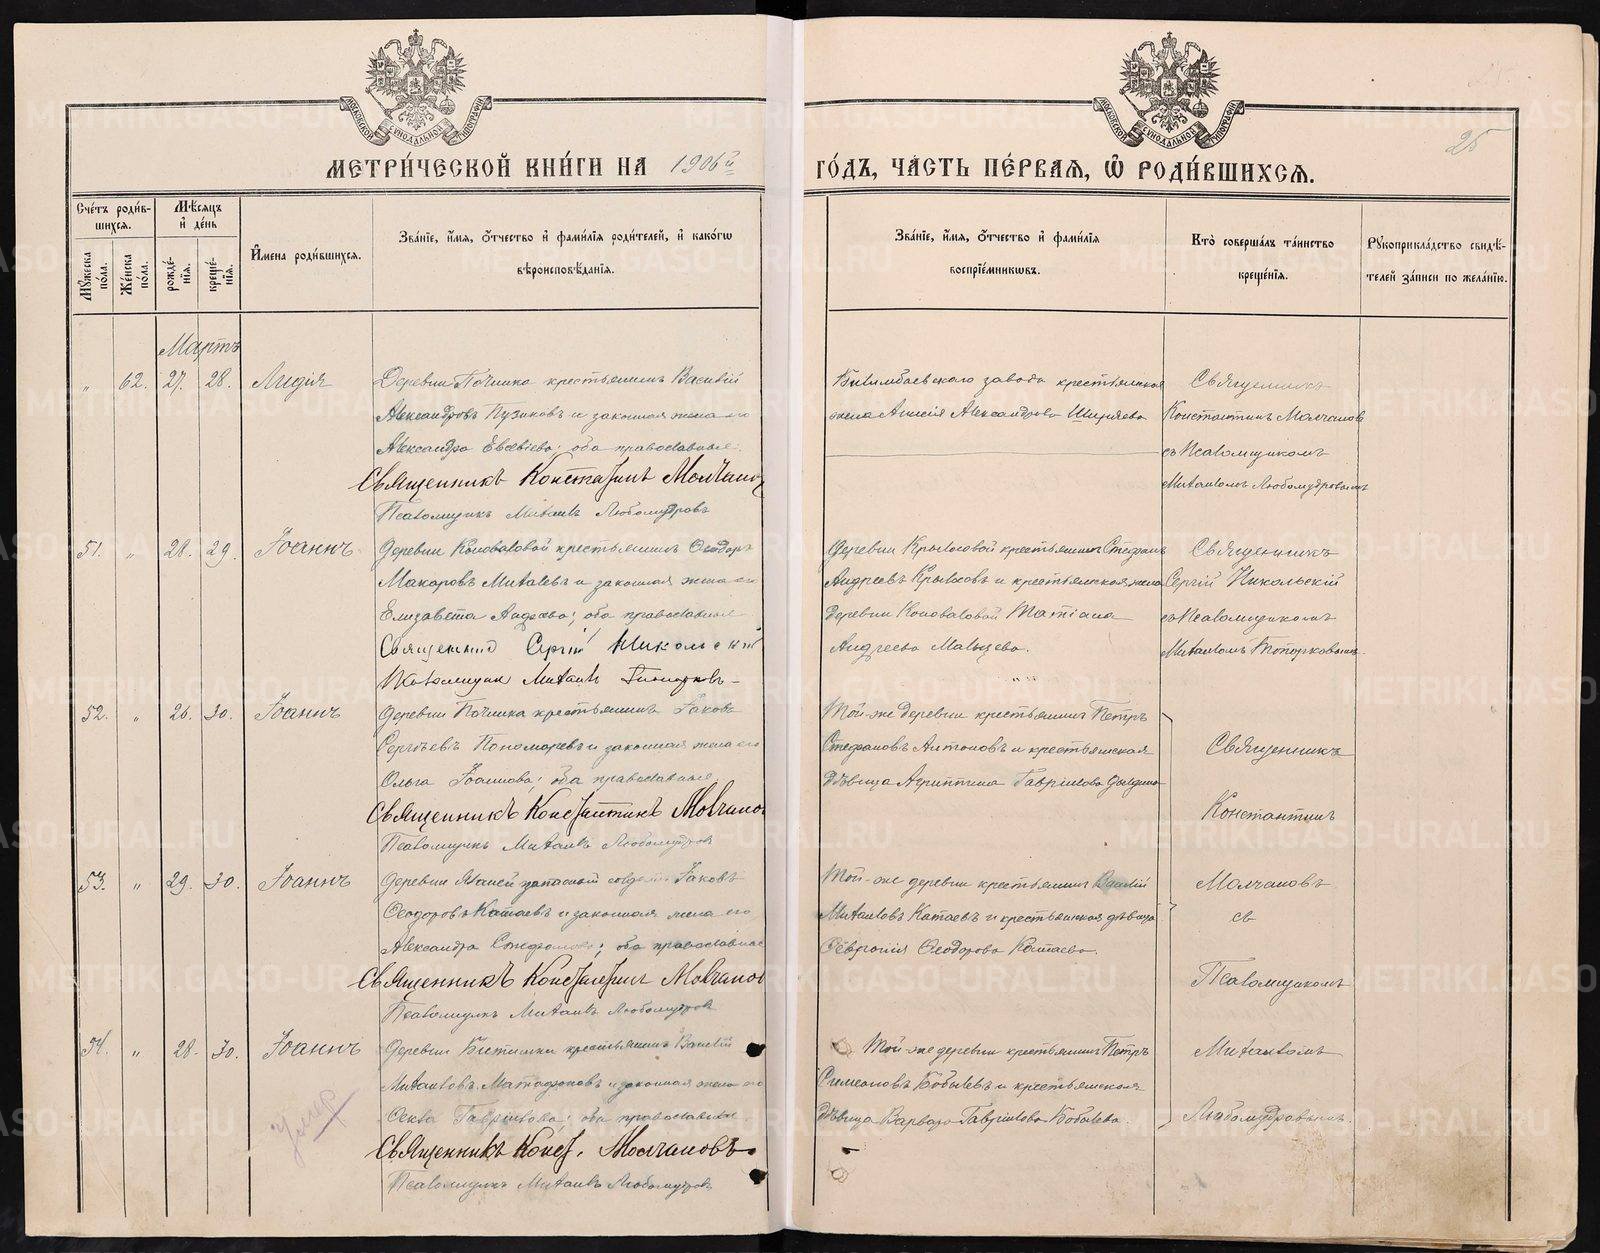 МЕТРИ́ЧЕСКОЙ КНИ́ГИ НА 1906й
ГО́ДЪ, ЧА́СТЬ ПЕ́РВАЯ, Ѿ РОДИ́ВШИХСЯ.
25
Сче́тъ роди́в-
шихся.
Мꙋжеска по́ла.
Же́нска по́ла.
Мѣсяцъ и́ де́нь
рожде́-нїя.
креще́-нїя.
И҆мена роди́вшихся.
Зва́нїе, и́мя, о́тчество и́ фами́лїя роди́телей, и́ како́гѡ
вѣроисповѣ́данїя.
Зва́нїе, и́мя, о́тчество и́ фами́лїя
воспрїе́мникѡвъ.
Кто̀ соверша́лъ та́инство
креще́нїя.
Рꙋкоприкла́дство свидѣ́-
телей за́писи по жела́нїю.
Мартъ
" 62. 27. 28. Лидія
Деревни Починка крестьянинъ Василій
Александровъ Пузиковъ и законная жена его
Александра Евсевіева; оба православные.
Священникъ Константинъ Молчанов
Псаломщикъ Михаилъ Любомудровъ
Билимбаевскаго завода крестьянская
жена Александрова Ширяева
Священникъ
Константинъ Молчановъ
съ Псаломщикомъ
Михаиломъ Любомудровымъ
51. " 28. 29. Іоаннъ
Деревни Коноваловой крестьянинъ Ѳеодоръ
Макаровъ Михалевъ и законная жена его
Елизавета Андреева; оба православные
Священник Сергій Никольскій
Псаломщик Михаилъ Топорковъ
Деревни Крыласовой крестьянинъ Стефанъ
Андреевъ Крыласовъ и крестьянская жена
деревни Коноваловой Татіана
Андреева Мальцева.
Священникъ
Сергій Никольскій
съ Псаломщикомъ
Михаиломъ Топорковымъ.
52. " 26. 30. Іоаннъ
Деревни Починка крестьянинъ Іаковъ
Сергѣевъ Пономаревъ и законная жена его
Ольга Іоаннова; оба православные.
Священникъ Константинъ Молчанов
Псаломщикъ Михаилъ Любомудров
Той-же деревни крестьянинъ Петръ
Стефановъ Антоновъ и крестьянская
дѣвица Агриппина Гавріилова
Священникъ
Константинъ
53. " 29. 30. Іоаннъ
Деревни запасный Іаковъ
Ѳеодоровъ Катаевъ и законная жена его
Александра Стефанова; оба православные
Священникъ Константинъ Молчанов
Псаломщикъ Михаилъ Любомудров
Той-же деревни крестьянинъ Василій
Михаиловъ Катаевъ и крестьянская дѣвица
Ѳеодорова Катаева.
Молчановъ
съ
Псаломщикомъ
54. " 28. 30. Іоаннъ
Деревни Битимки крестьянинъ Василій
Михаиловъ Матафоновъ и законная жена его
Гавріилова; оба православные
Священникъ Конст. Молчановъ.
Псаломщикъ Михаилъ Любомудровъ
Умер
Той-же деревни крестьянинъ Петръ
Симеоновъ Бобылевъ и крестьянская
дѣвица Варвара Гавріилова Бобылева.
Михаиломъ
Любомудровымъ.